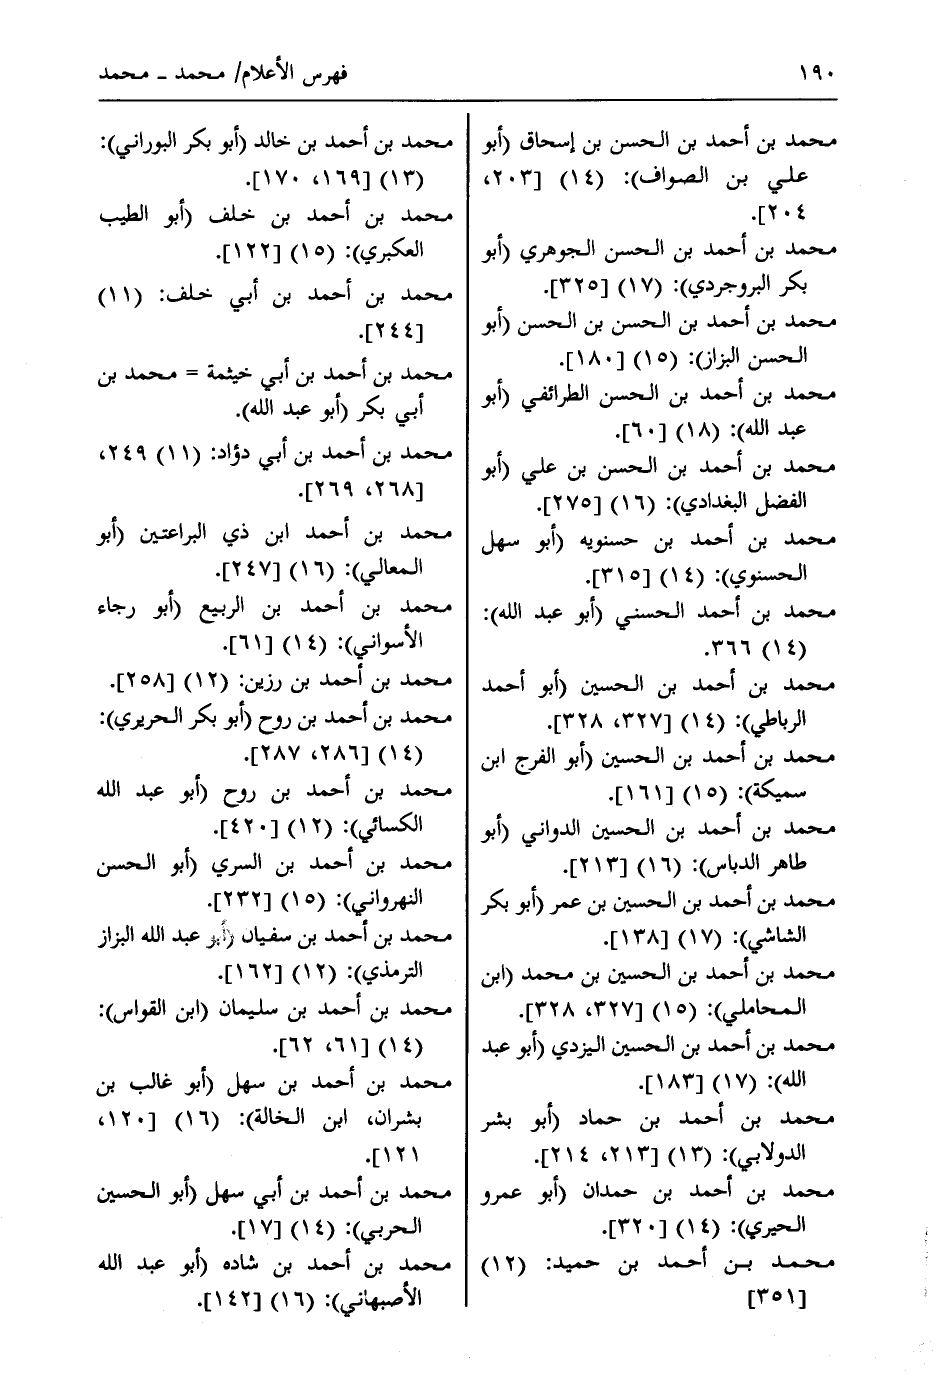 ١٩٠
فهرس الأعلام/ محمد ـ محمد
محمد بن أحمد بن الحسن بن إسحاق (أبو
علي بن الصواف): (١٤) [٢٠٣،
٢٠٤].
محمد بن أحمد بن الحسن الجوهري (أبو
بكر البروجردي): (١٧) [٣٢٥].
محمد بن أحمد بن الحسن بن الحسن (أبو
الحسن البزاز): (١٥) [١٨٠].
محمد بن أحمد بن الحسن الطرائفي (أبو
عبد الله): (١٨) [٦٠].
محمد بن أحمد بن الحسن بن علي (أبو
الفضل البغدادي): (١٦) [٢٧٥].
محمد بن أحمد بن حسنويه (أبو سهل
الحسنوي): (١٤) [٣١٥].
محمد بن أحمد الحسني (أبو عبد الله):
(١٤) ٣٦٦.
محمد بن أحمد بن الحسين (أبو أحمد
الرباطي): (١٤) [٣٢٧، ٣٢٨].
محمد بن أحمد بن الحسين (أبو الفرج ابن
سميكة): (١٥) [١٦١].
محمد بن أحمد بن الحسين الدواني (أبو
طاهر الدباس): (١٦) [٢١٣].
محمد بن أحمد بن الحسين بن عمر (أبو بكر
الشاشي): (١٧) [١٣٨].
محمد بن أحمد بن الحسين بن محمد (ابن
المحاملي): (١٥) [٣٢٧، ٣٢٨].
محمد بن أحمد بن الحسين اليزدي (أبو عبد
الله): (١٧) [١٨٣].
محمد بن أحمد بن حماد (أبو بشر
الدولابي): (١٣) [٢١٣، ٢١٤].
محمد بن أحمد بن حمدان (أبو عمرو
الحيري): (١٤) [٣٢٠].
محمد بن أحمد بن حميد: (١٢)
[٣٥١]
محمد بن أحمد بن خالد (أبو بكر البوراني):
(١٣) [١٦٩، ١٧٠].
محمد بن أحمد بن خلف (أبو الطيب
العكبري): (١٥) [١٢٢].
محمد بن أحمد بن أبي خلف: (١١)
[٢٤٤].
محمد بن أحمد بن أبي خيثمة = محمد بن
أبي بكر (أبو عبد الله).
محمد بن أحمد بن أبي دؤاد: (١١) ٢٤٩،
[٢٦٨، ٢٦٩].
محمد بن أحمد ابن ذي البراعتين (أبو
المعالي): (١٦) [٢٤٧].
محمد بن أحمد بن الربيع (أبو رجاء
الأسواني): (١٤) [٦١].
محمد بن أحمد بن رزين: (١٢) [٢٥٨].
محمد بن أحمد بن روح (أبو بكر الحريري):
(١٤) [٢٨٦، ٢٨٧].
محمد بن أحمد بن روح (أبو عبد الله
الكسائي): (١٢) [٤٢٠].
محمد بن أحمد بن السري (أبو الحسن
النهرواني): (١٥) [٢٣٢].
محمد بن أحمد بن سفيان (أبو عبد الله البزاز
الترمذي): (١٢) [١٦٢].
محمد بن أحمد بن سليمان (ابن القواس):
(١٤) [٦١، ٦٢].
محمد بن أحمد بن سهل (أبو غالب بن
بشران، ابن الخالة): (١٦) [١٢٠،
١٢١].
محمد بن أحمد بن أبي سهل (أبو الحسين
الحربي): (١٤) [١٧].
محمد بن أحمد بن شاده (أبو عبد الله
الأصبهاني): (١٦) [١٤٢].